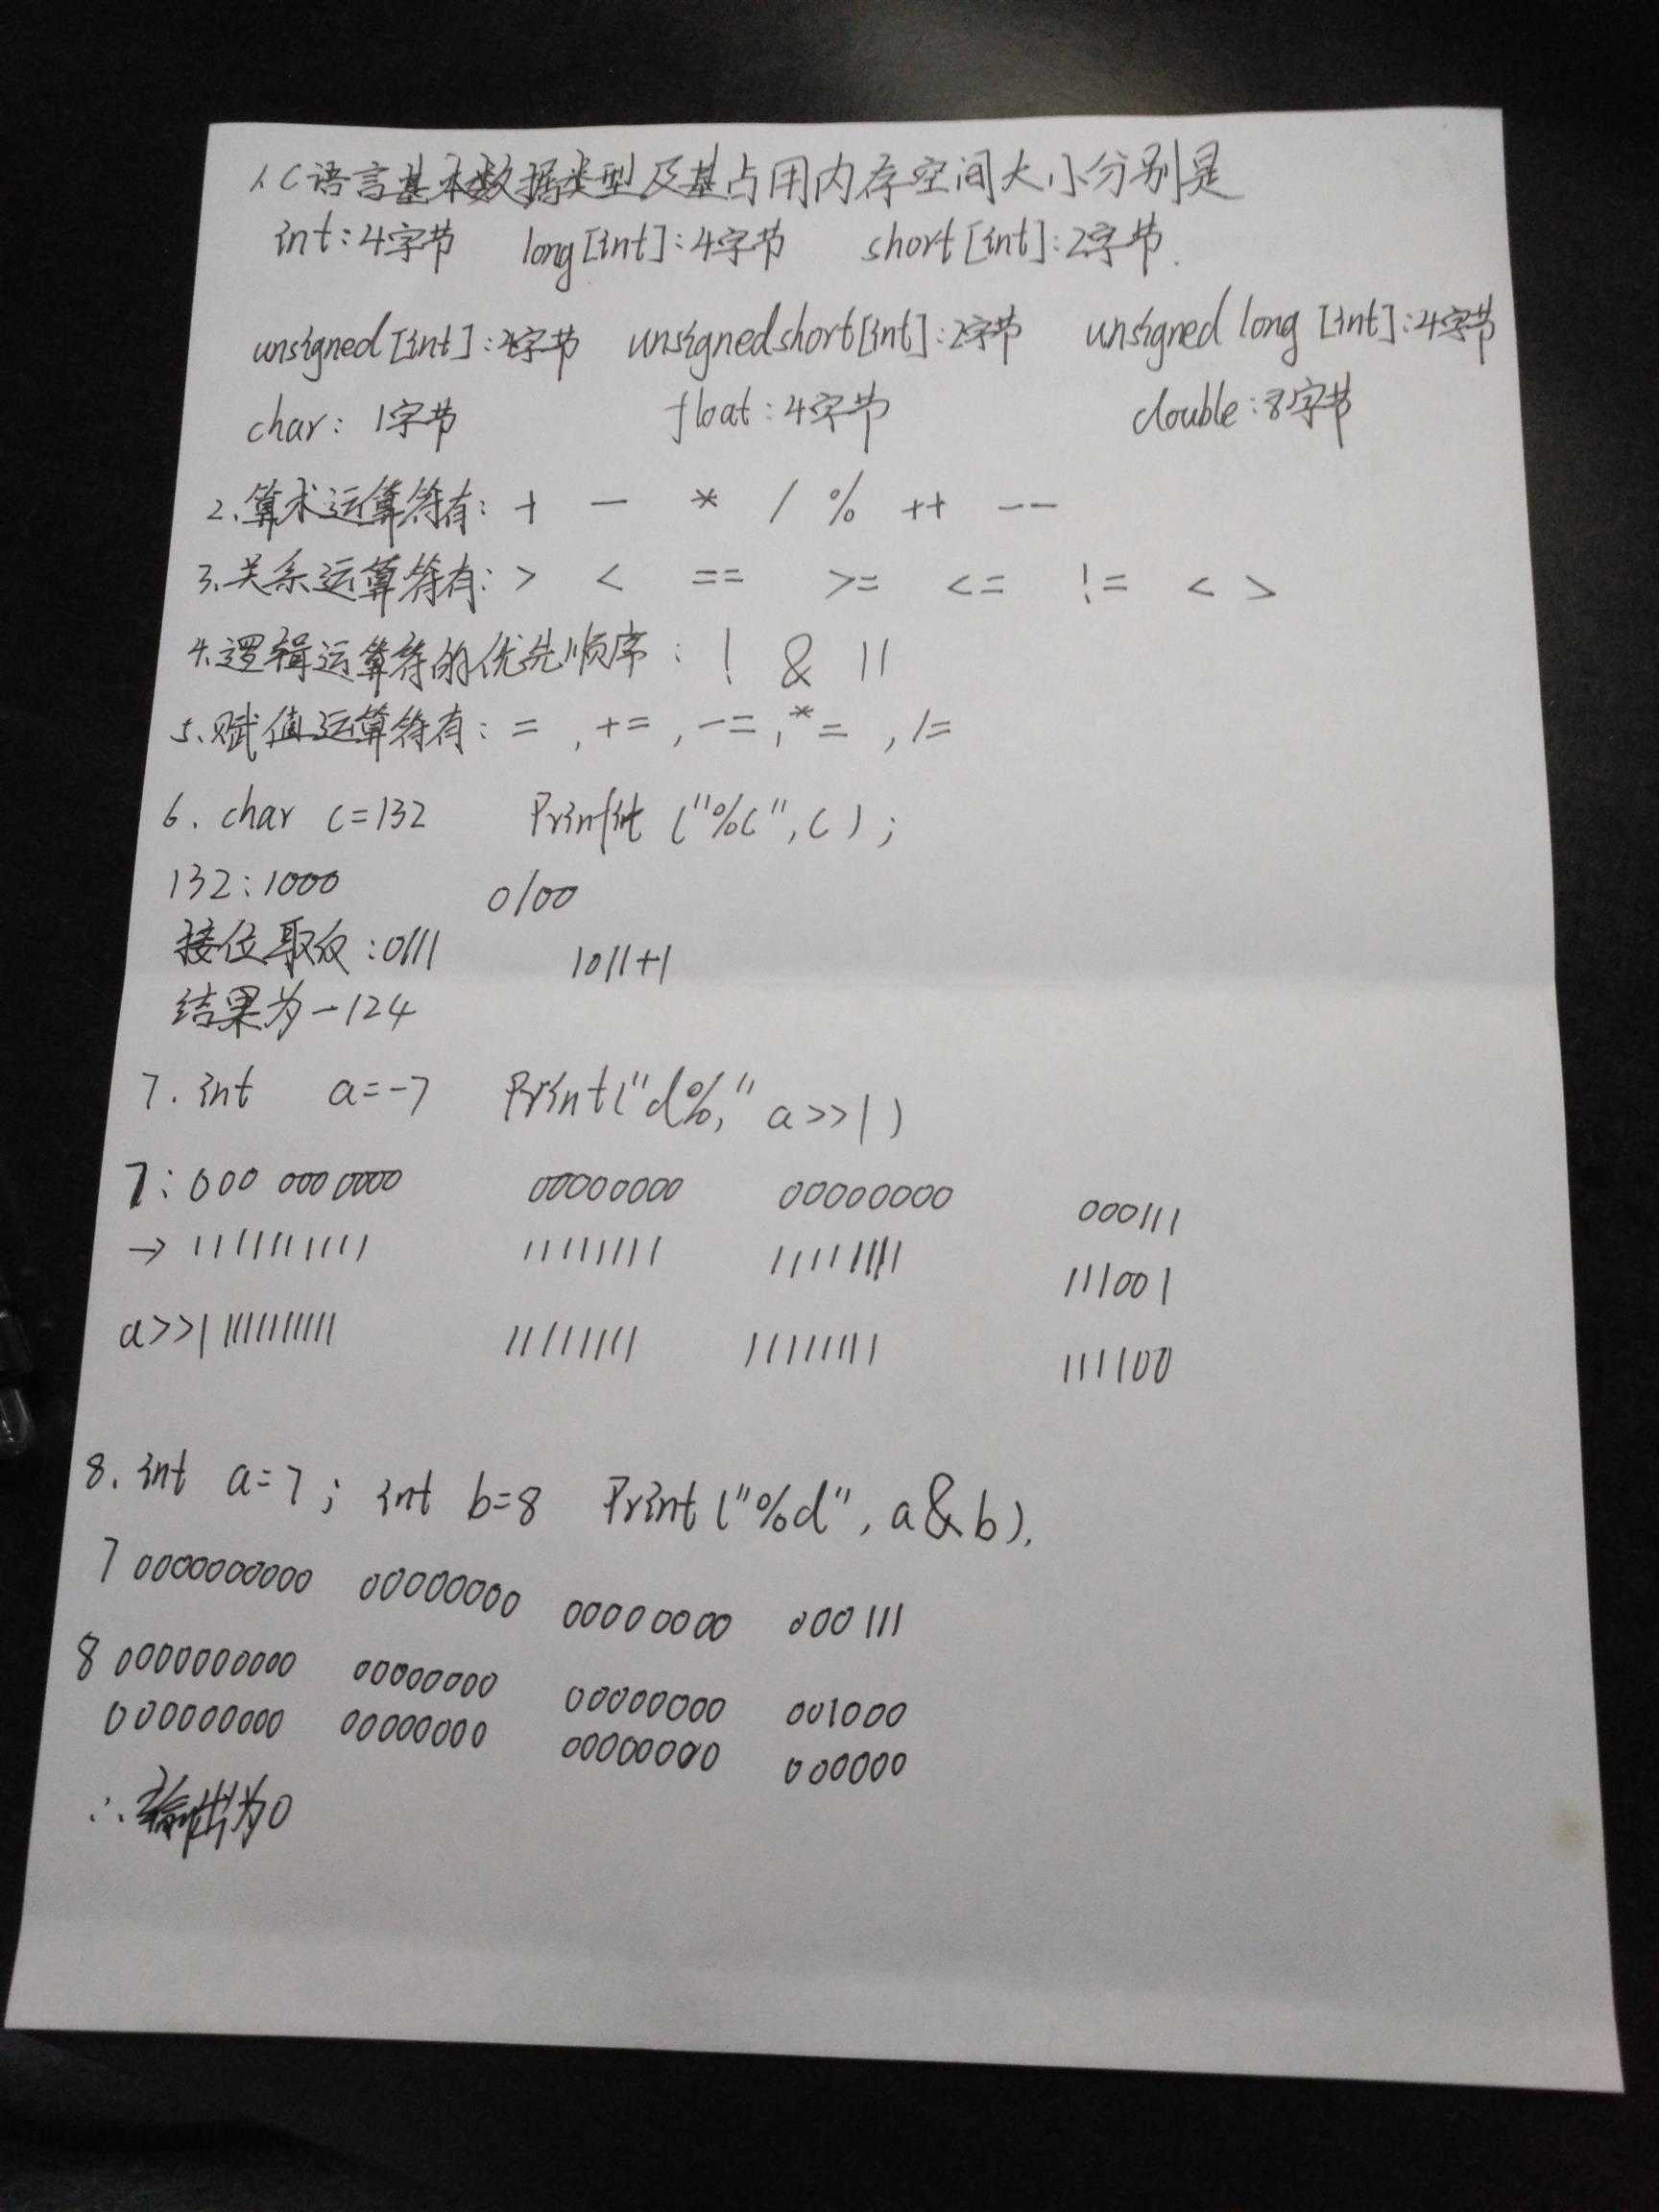 1.C语言基本数据类型及基占用内存空间大小分别是
int:4字节 long[int]:4字节 short[int]:2字节.
unsigned[int]:字节 unsignedshort[int]:2字节 unsigned long [int]:4字节
char: 1字节 float:4字节 double:8字节
2、算术运算符有: + − * / % ++ −−
3.关系运算符有: > < == >= <= != < >
4.逻辑运算符的优先顺序: ! & ||
5、赋值运算符有: = , += , −= , *= , /=
6. char c=132 ("%c",c);
132:1000 0100
按位取反:0111 1011+1
结果为−124
7. int a=-7 Print("d%," a>>1)
7: 000 000 0000 00000000 00000000 000111
→ 1111111111 11111111 11111111 111001
a>>1 1111111111 11111111 11111111 111100
8. int a=7; int b=8 Print("%d", a&b).
7 0000000000 00000000 00000000 000111
8 0000000000 00000000 00000000 001000
0000000000 00000000 00000000 000000
∴输出为0